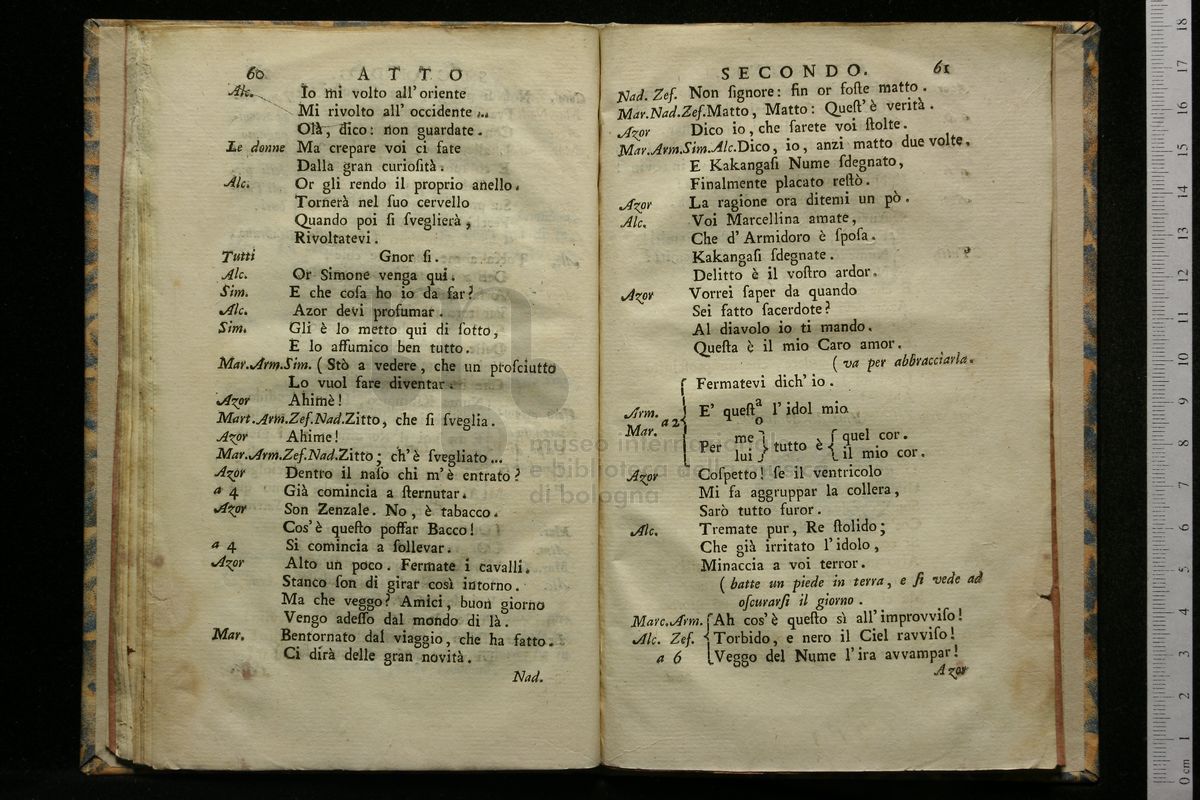 60 ATTO
Alc. Io mi volto all'oriente
Mi rivolto all' occidente ...
Olà, dico: non guardate.
Le donne Ma crepare voi ci fate
Dalla gran curioſità.
Alc. Or gli rendo il proprio anello.
Tornerà nel ſuo cervello
Quando poi ſi ſveglierà,
Rivoltatevi.
Tutti Gnor ſi.
Alc. Or Simone venga qui.
Sim. E che coſa ho io da far?
Alc. Azor devi profumar.
Sim. Gli è lo metto qui di ſotto,
E lo affumico ben tutto.
Mar.Arm.Sim. (Stò a vedere, che un proſciutto
Lo vuol fare diventar.
Azor Ahimè!
Mart.Arm.Zef.Nad.Zitto, che ſi ſveglia.
Azor Ahime!
Mar.Arm.Zef.Nad.Zitto; ch'è ſvegliato...
Azor Dentro il naſo chi m'è entrato?
a 4 Già comincia a ſternutar.
Azor Son Zenzale. No, è tabacco.
Cos'è queſto poffar Bacco!
a 4 Si comincia a ſollevar.
Azor Alto un poco. Fermate i cavalli.
Stanco ſon di girar così intorno.
Ma che veggo? Amici, buon giorno
Vengo adeſſo dal mondo di là.
Mar. Bentornato dal viaggio, che ha fatto.
Ci dirà delle gran novità.
Nad.
SECONDO. 61
Nad. Zef. Non ſignore: fin or foſte matto.
Mar.Nad.Zef.Matto, Matto: Queſt'è verità.
Azor Dico io, che ſarete voi ſtolte.
Mar.Arm.Sim.Alc.Dico, io, anzi matto due volte.
E Kakangaſi Nume ſdegnato,
Finalmente placato reſtò.
Azor La ragione ora ditemi un pò.
Alc. Voi Marcellina amate,
Che d'Armidoro è ſpoſa.
Kakangaſi ſdegnate.
Delitto è il voſtro ardor.
Azor Vorrei ſaper da quando
Sei fatto ſacerdote?
Al diavolo io ti mando.
Queſta è il mio Caro amor.
(va per abbracciarla.
Fermatevi dich' io.
Arm. Mar. a 2 E' queſt a o l'idol mio
Per me lui tutto è quel cor. il mio cor.
Azor Coſpetto! ſe il ventricolo
Mi fa aggruppar la collera,
Sarò tutto furor.
Alc. Tremate pur, Re ſtolido;
Che già irritato l'idolo,
Minaccia a voi terror.
(batte un piede in terra, e ſi vede ad
oſcurarſi il giorno.
Marc.Arm. Ah cos'è queſto sì all'improvviſo!
Alc. Zef. Torbido, e nero il Ciel ravviſo!
a 6 Veggo del Nume l'ira avvampar!
Azor
museo internazionale
e biblioteca della musica
di bologna
0 cm 1 2 3 4 5 6 7 8 9 10 11 12 13 14 15 16 17 18